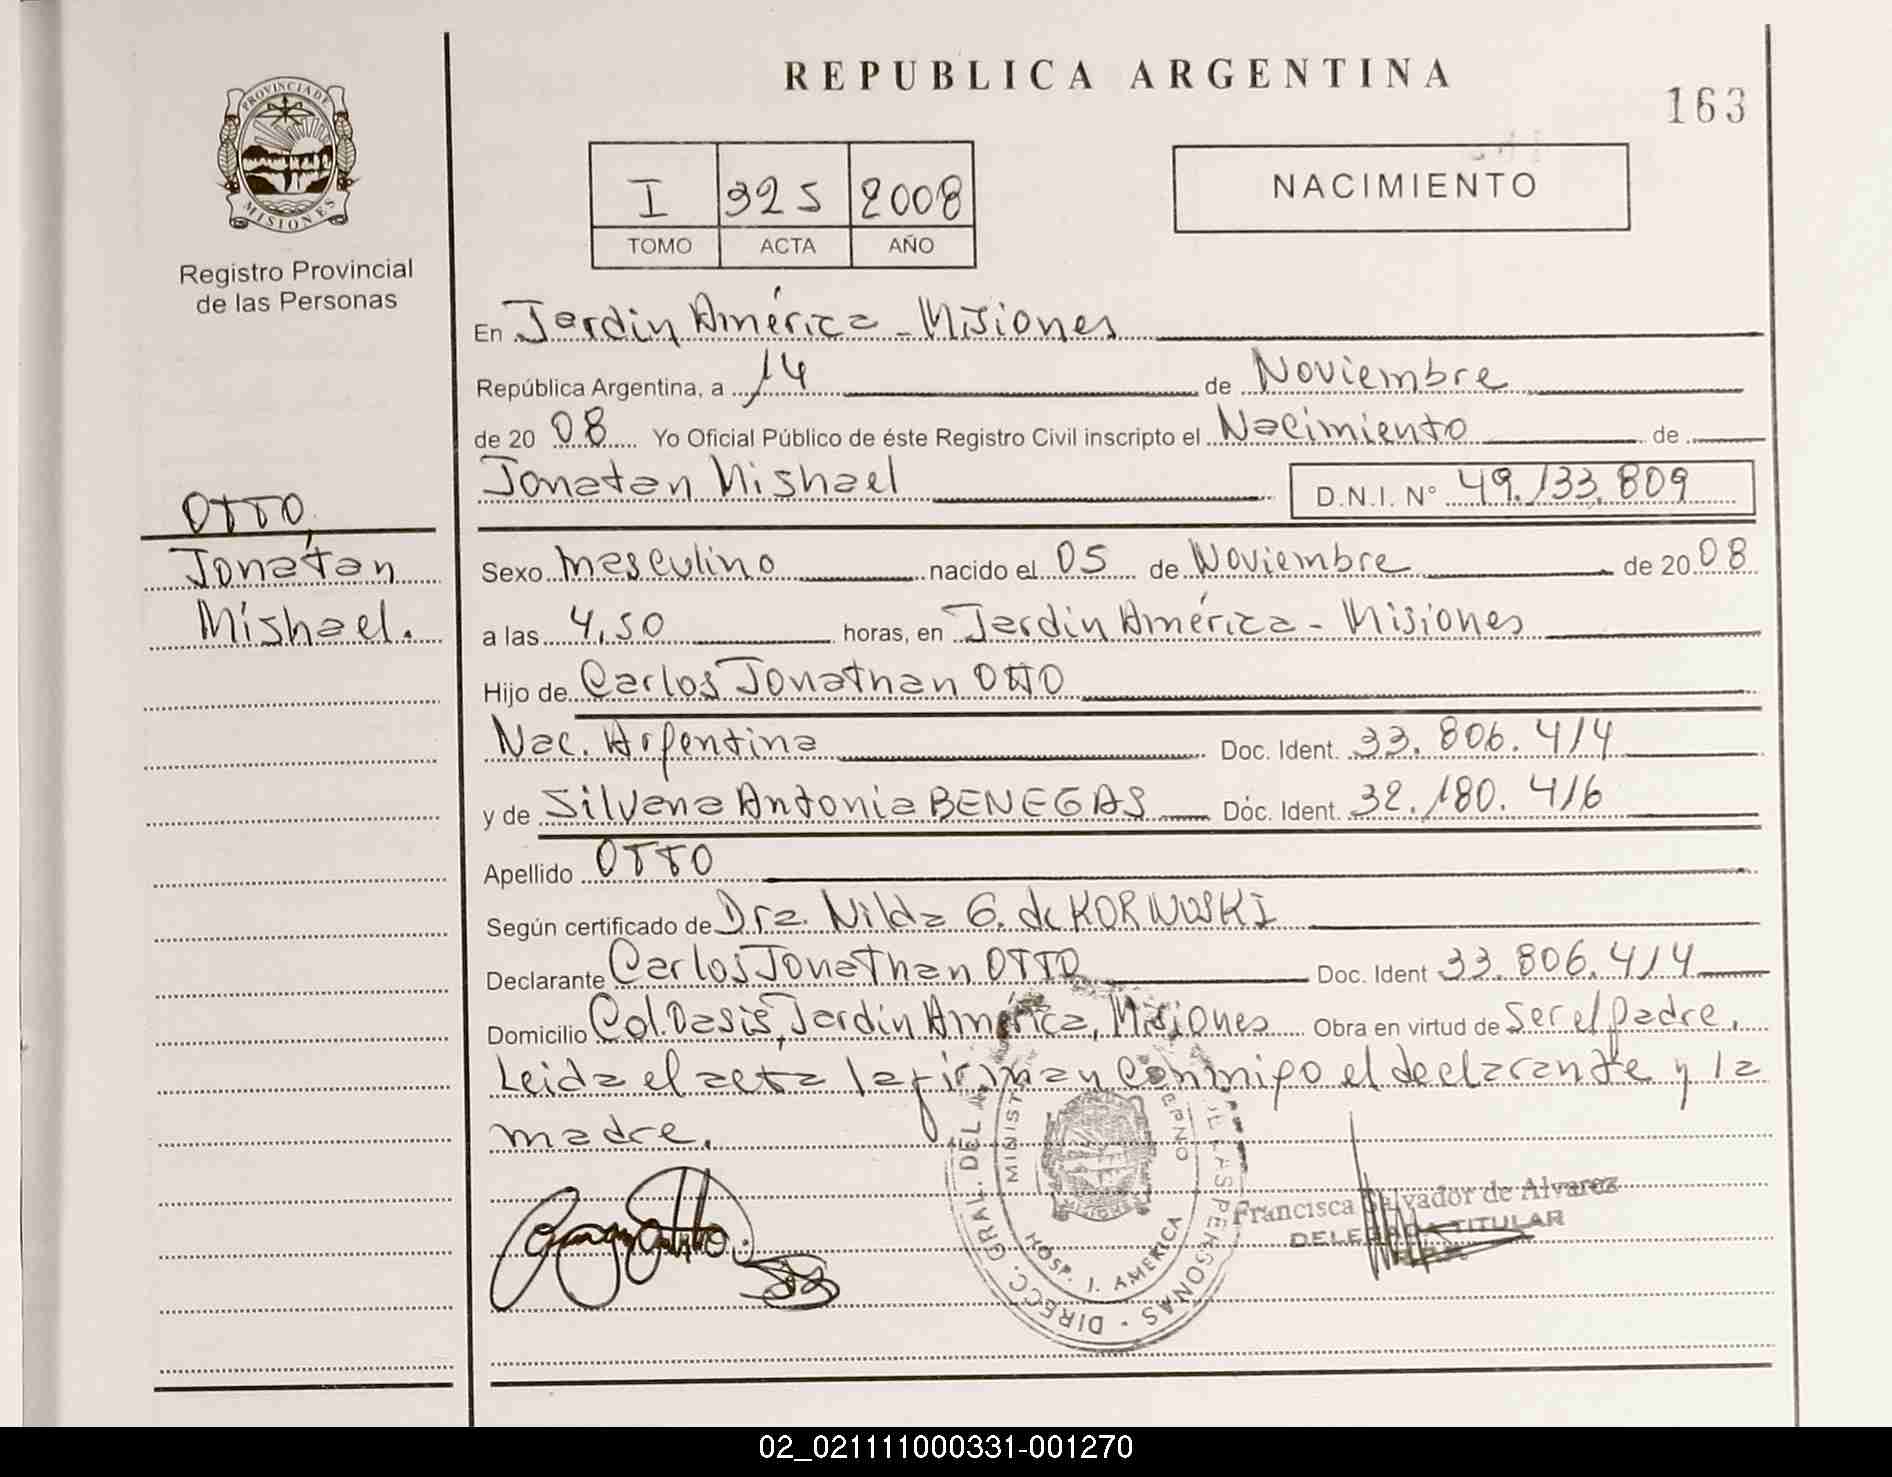 REPUBLICA ARGENTINA
163
PROVINCIA DE
MISIONES
Registro Provincial
de las Personas
I 325 2008
TOMO ACTA AÑO
NACIMIENTO
En Jardin América - Misiones
República Argentina, a 14 de Noviembre
de 20 08 Yo Oficial Público de éste Registro Civil inscripto el Nacimiento de
Jonatan Mishael D.N.I. N° 49.133.809
OTTO
Jonatan
Mishael.
Sexo masculino nacido el 05 de Noviembre de 20 08
a las 4,50 horas, en Jardin América - Misiones
Hijo de Carlos Jonathan OTTO
Nac. Argentina Doc. Ident. 33.806.414
y de Silvana Antonia BENEGAS Doc. Ident. 32.180.416
Apellido OTTO
Según certificado de Dra. Nilda G. de KORWOSKI
Declarante Carlos Jonathan OTTO Doc. Ident 33.806.414
Domicilio Col. Oasis, Jardin América, Misiones Obra en virtud de ser el padre.
Leida el acta la firman conmigo el declarante y la
madre.
DIRECC. GRAL. DEL PERSONAS
HOSP. J. AMERICA
Francisca Salvador de Alvarez
DELEGADA TITULAR
02_021111000331-001270